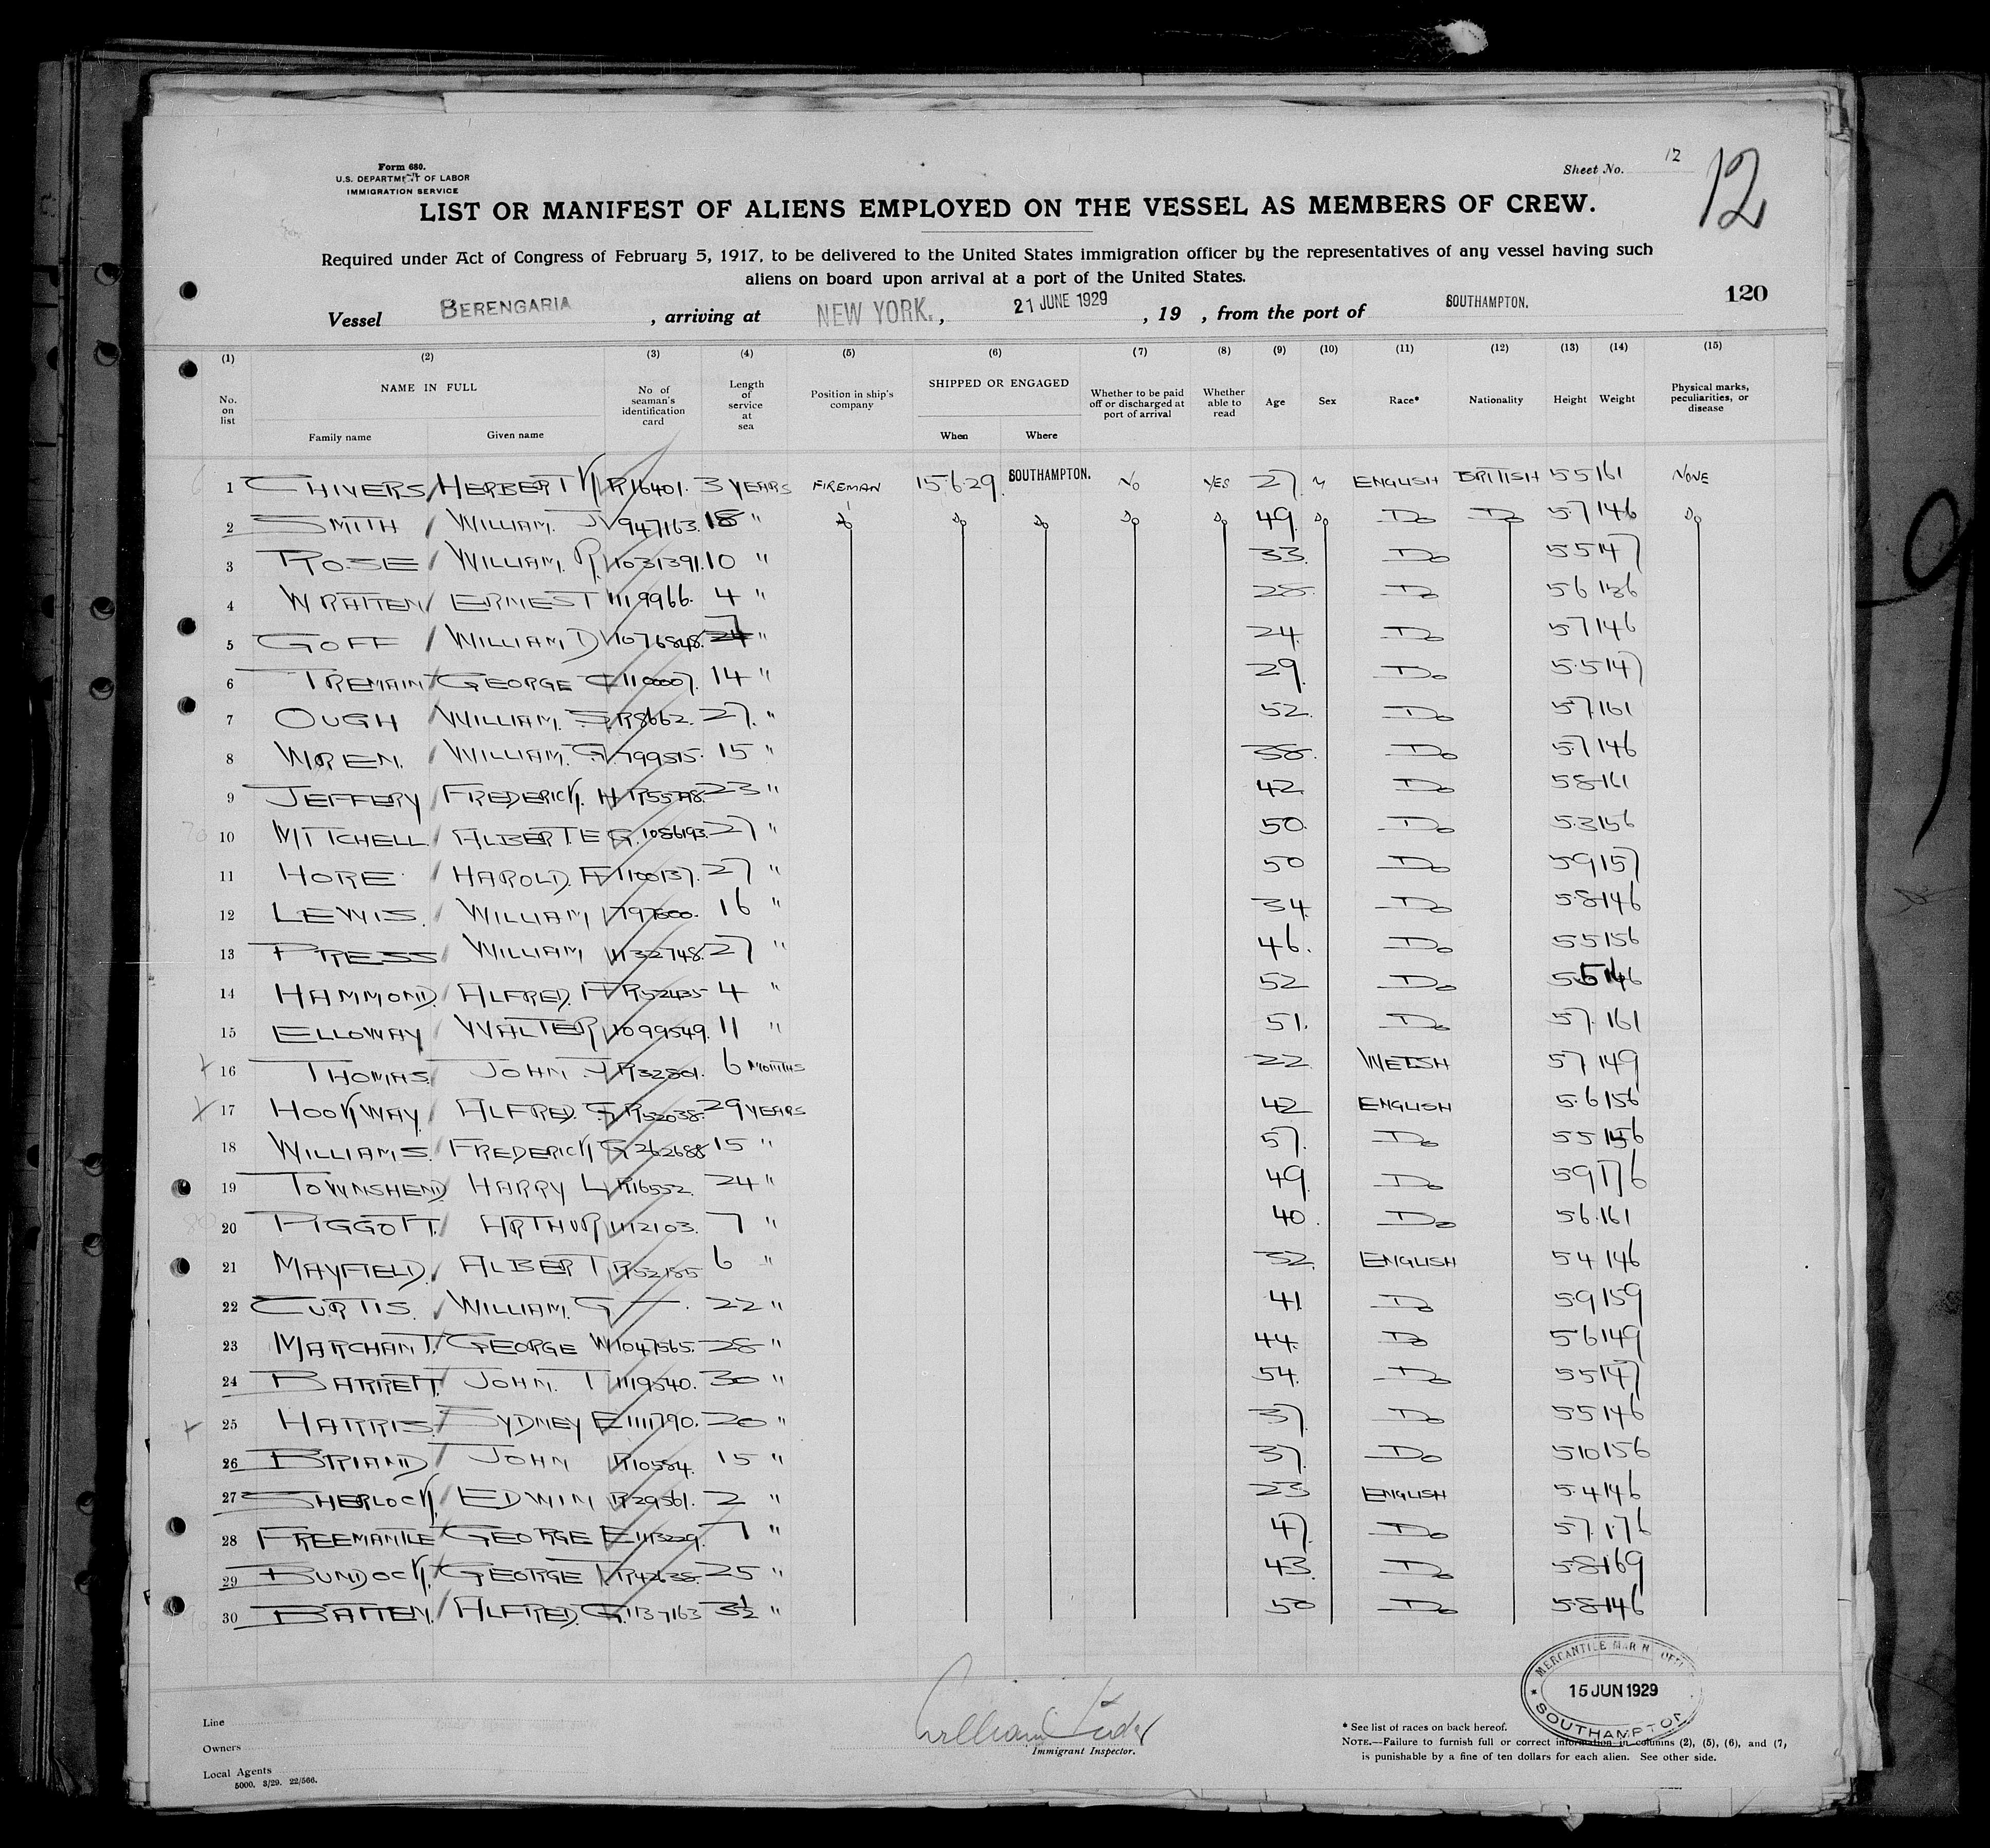 Form 680.
U.S. DEPARTMENT OF LABOR
IMMIGRATION SERVICE
Sheet No. 12
12
LIST OR MANIFEST OF ALIENS EMPLOYED ON THE VESSEL AS MEMBERS OF CREW.
Required under Act of Congress of February 5, 1917, to be delivered to the United States immigration officer by the representatives of any vessel having such
aliens on board upon arrival at a port of the United States.
120
Vessel BERENGARIA, arriving at NEW YORK., 21 JUNE 1929, 19 , from the port of SOUTHAMPTON.
(1) (2) (3) (4) (5) (6) (7) (8) (9) (10) (11) (12) (13) (14) (15)
No. on list NAME IN FULL Family name Given name No. of seaman's identification card Length of service at sea Position in ship's company SHIPPED OR ENGAGED When Where Whether to be paid off or discharged at port of arrival Whether able to read Age Sex Race* Nationality Height Weight Physical marks, peculiarities, or disease
1 CHIVERS HERBERT K R16401. 3 YEARS FIREMAN 15.6.29. SOUTHAMPTON. NO YES 27. M ENGLISH BRITISH 5 5 161 NONE
2 SMITH WILLIAM. J 947163. 18 " Do Do Do Do Do 49. Do Do Do 5.7 146 Do
3 ROSE WILLIAM. R. 1031391. 10 " 33. Do 5 5 147
4 WRATTEN ERNEST 1119966. 4 " 28. Do 5 6 136
5 GOFF WILLIAM D 1076848. 7 " 24. Do 5 7 146
6 TREMAIN GEORGE C 110007. 14 " 29. Do 5.5 147
7 OUGH WILLIAM. S R8662. 27. " 52. Do 5 7 161
8 WREN. WILLIAM. G. 799515. 15 " 38. Do 5.7 146
9 JEFFERY FREDERICK. H 23 " 42. Do 5 8 161
10 MITCHELL. ALBERT. E G. 1086193. 27 " 50. Do 5.3 156
11 HORE HAROLD. F 1100137. 27 " 50 Do 5 9 157
12 LEWIS. WILLIAM 16 " 34. Do 5.8 146
13 PRESS WILLIAM 1132748. 27 " 46. Do 5 5 156
14 HAMMOND. ALFRED. A R52435 4 " 52 Do 5 5 146
15 ELLOWAY WALTER 1099549. 11 " 51. Do 5 7. 161
16 THOMAS. JOHN J R32801. 6 MONTHS 22. WELSH 5 7 149
17 HOOKWAY. ALFRED. G. R52038. 29 YEARS 42 ENGLISH 5.6 156
18 WILLIAMS. FREDERICK G 262688 15 " 57. Do 5 5 156
19 TOWNSHEND HARRY L R16552. 24 " 49. Do 5 9 176
20 PIGGOTT. ARTHUR 1112103. 7 " 40. Do 5 6. 161
21 MAYFIELD. ALBERT R52185 6 " 32. ENGLISH 5 4 146
22 CURTIS. WILLIAM. G — . 22 " 41 Do 5.9 159
23 MARCHANT. GEORGE W 1047565. 28 " 44. Do 5 6 149
24 BARRETT. JOHN. T 1119540. 30 " 54. Do 5 5 147
25 HARRIS. SYDNEY E 1111790. 20 " 37. Do 5 5 146
26 BRIAND JOHN R10584. 15 " 37. Do 5 10 156
27 SHERLOCK. EDWIN R29561. 2 " 23 ENGLISH 5.4 146
28 FREEMANTLE GEORGE E 1113229. 7 " 47. Do 5 7. 176
29 BUNDOCK. GEORGE T R42638. 25 " 43. Do 5.8 169
30 BATTEN. ALFRED. G. 1137163 3½ " 50 Do 5.8 146
MERCANTILE MARINE OFFICE
15 JUN 1929
* SOUTHAMPTON
Line
Owners
Local Agents
5000. 3/29. 22/566.
Immigrant Inspector.
* See list of races on back hereof.
NOTE.—Failure to furnish full or correct information in columns (2), (5), (6), and (7,
is punishable by a fine of ten dollars for each alien. See other side.